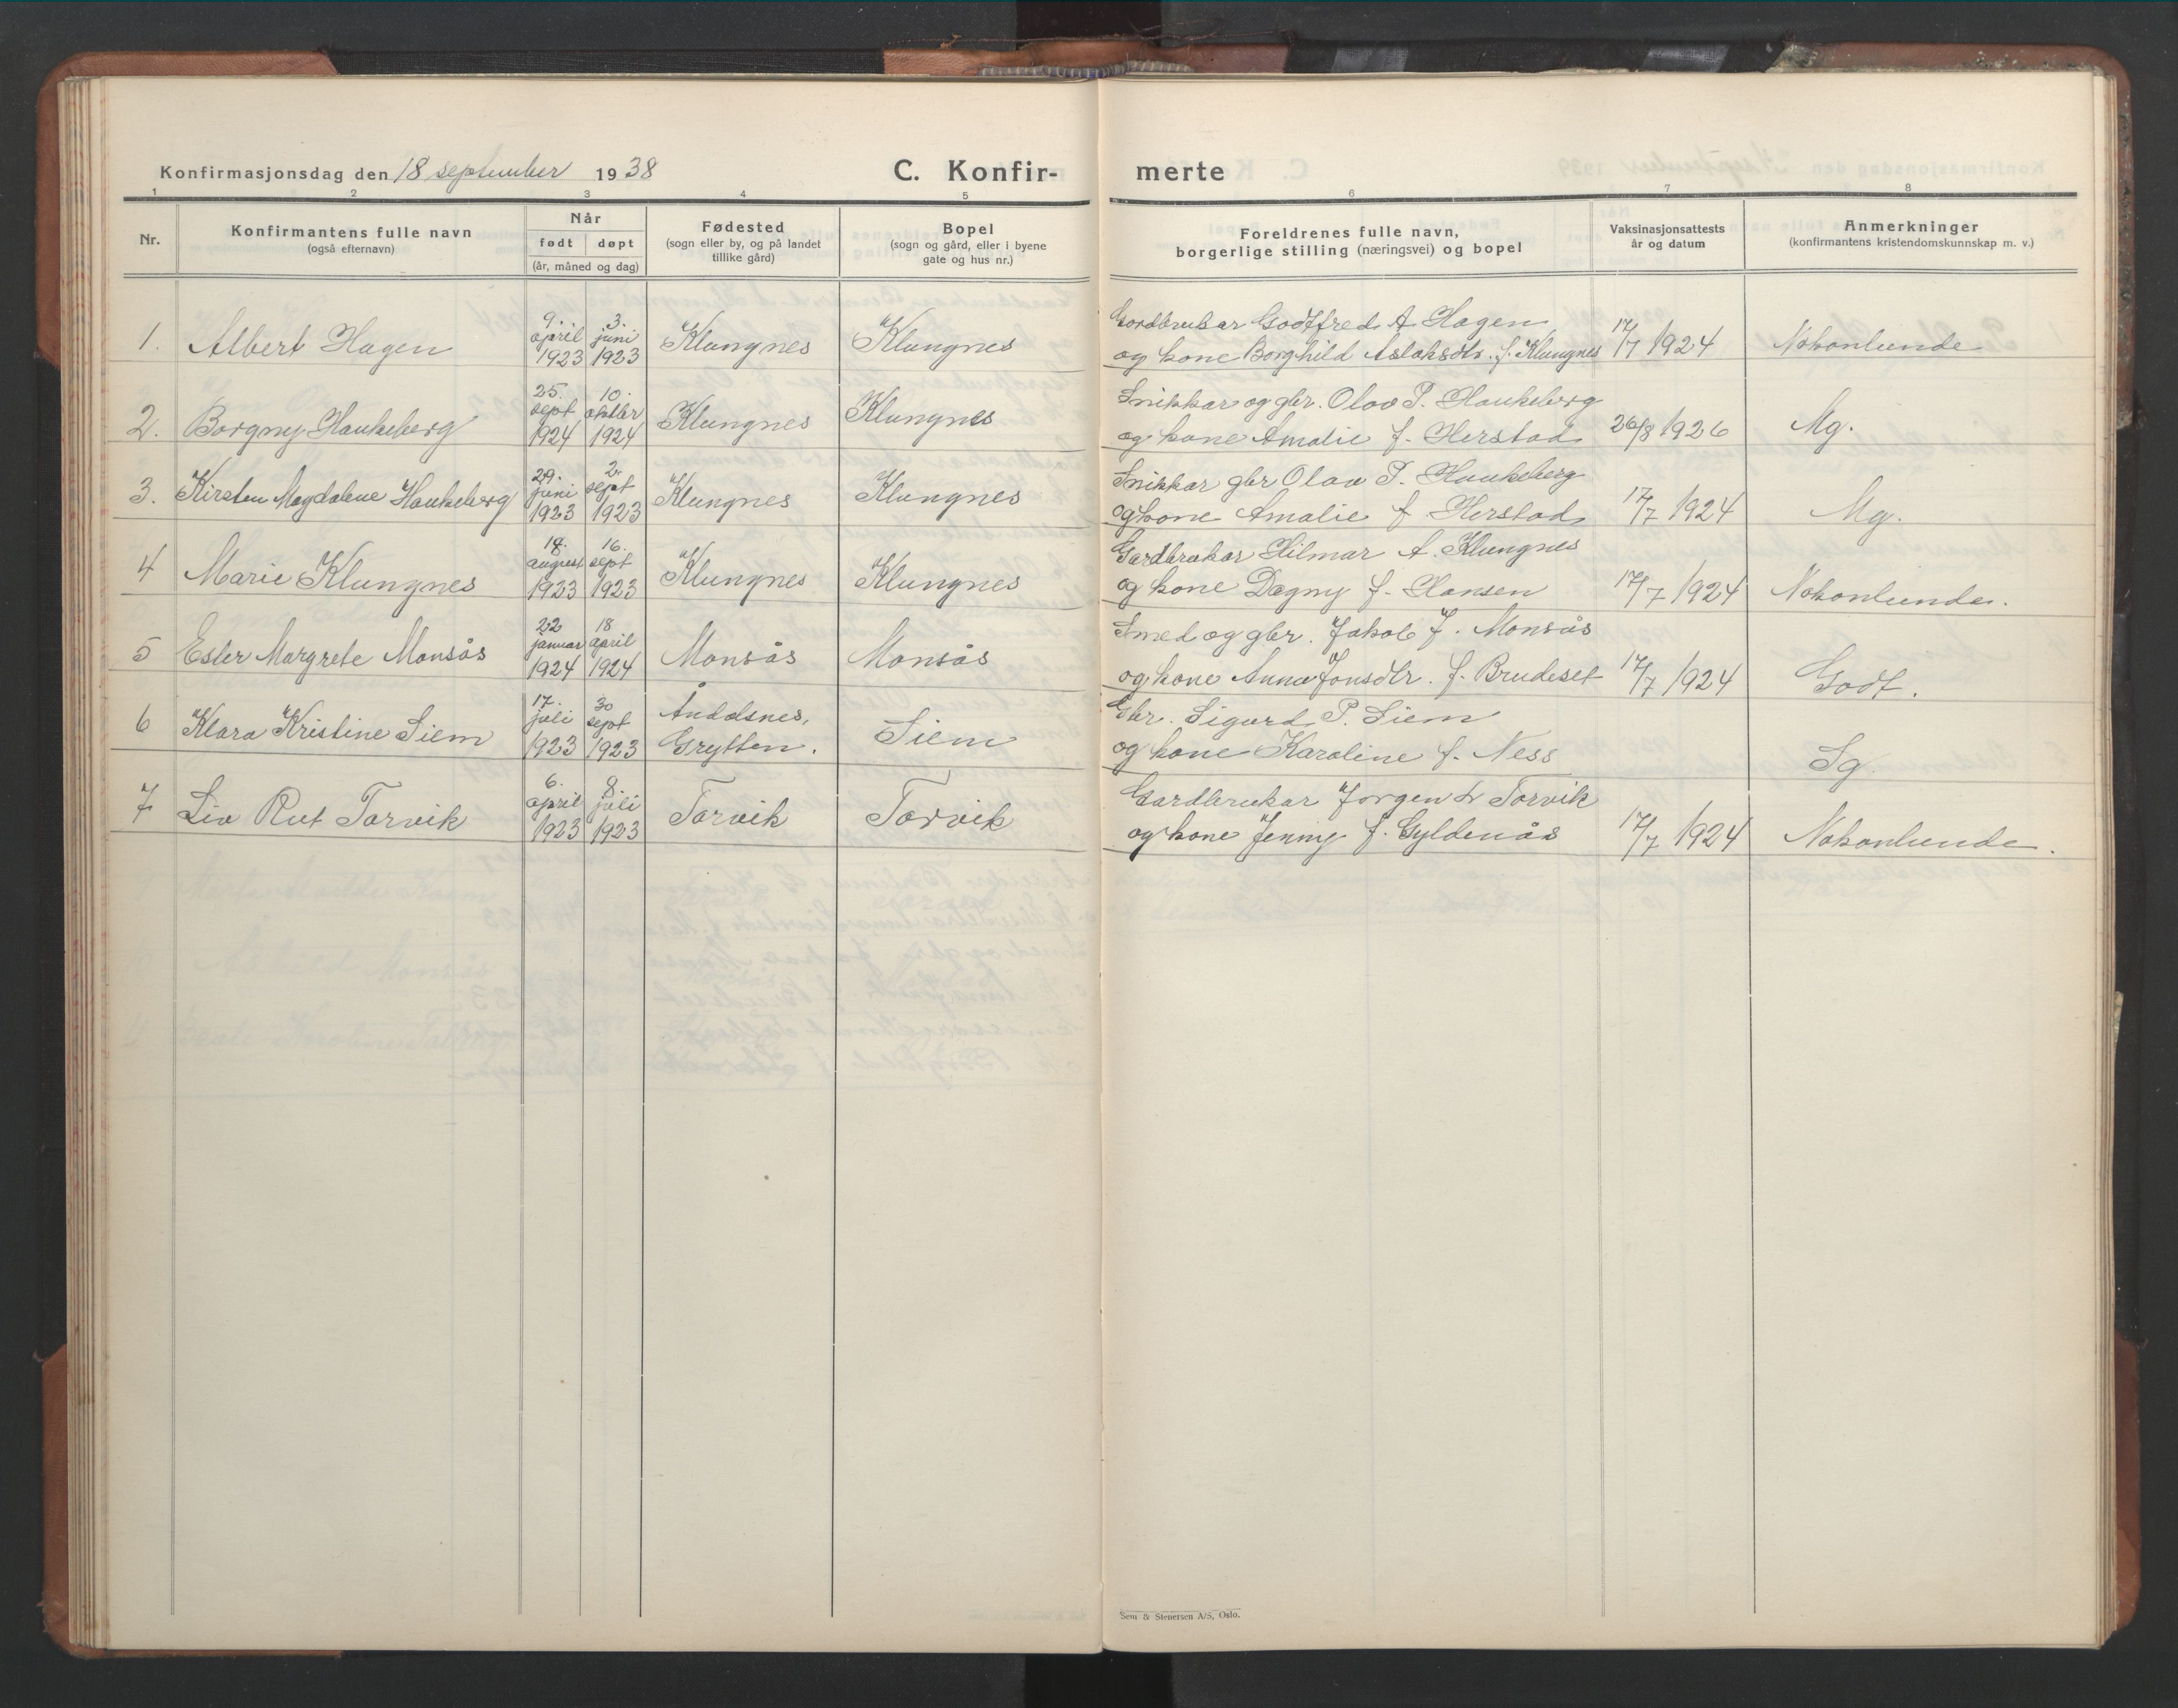 Konfirmasjonsdag den 18 september 1938
C. Konfir-
merte
1 2 3 4 5 6 7 8
Nr.
Konfirmantens fulle navn
(også efternavn)
Når
født døpt
(år, måned og dag)
Fødested
(sogn eller by, og på landet
tillike gård)
Bopel
(sogn og gård, eller i byene
gate og hus nr.)
Foreldrenes fulle navn,
borgerlige stilling (næringsvei) og bopel
Vaksinasjonsattests
år og datum
Anmerkninger
(konfirmantens kristendomskunnskap m. v.)
1. Albert Hagen
9. april 1923
3. juni 1923
Klungnes
Klungnes
Gardbrukar Godtfred A Hagen
og kone Borghild Aslaksdtr. f. Klungnes
17/7 1924
Nokonlunde
2. Borgny Haukeberg
25. sept 1924
10. oktbr 1924
Klungnes
Klungnes
Snikkar og gbr. Olav P. Haukeberg
og kone Amalie f. Herstad
26/8 1926
Mg.
3. Kirsten Magdalene Haukeberg
29. juni 1923
2. sept 1923
Klungnes
Klungnes
Snikkar gbr Olav P. Haukeberg
og kone Amalie f Herstad
17/7 1924
Mg.
4 Marie Klungnes
18. august 1923
16. sept 1923
Klungnes
Klungnes
Gardbrukar Hilmar A. Klungnes
og kone Dagny f. Hansen
17/7 1924
Nokonlunde.
5 Ester Margrete Monsås
22 januar 1924
18 april 1924
Monsås
Monsås
Smed og gbr. Jakob J. Monsås
og kone Anna Jonsdtr. f. Brudeset
17/7 1924
Godt.
6 Klara Kristine Siem
17. juli 1923
30 sept 1923
Åndalsnes,
Grytten.
Siem
Gbr. Sigurd P. Siem
og kone Karoline f. Ness
Sg.
7 Liv Rut Torvik
6. april 1923
8. juli 1923
Torvik
Torvik
Gardbrukar Jørgen Torvik
og kone Jenny f. Gyldenås
17/7 1924
Nokonlunde.
Sem & Stenersen A/S, Oslo.